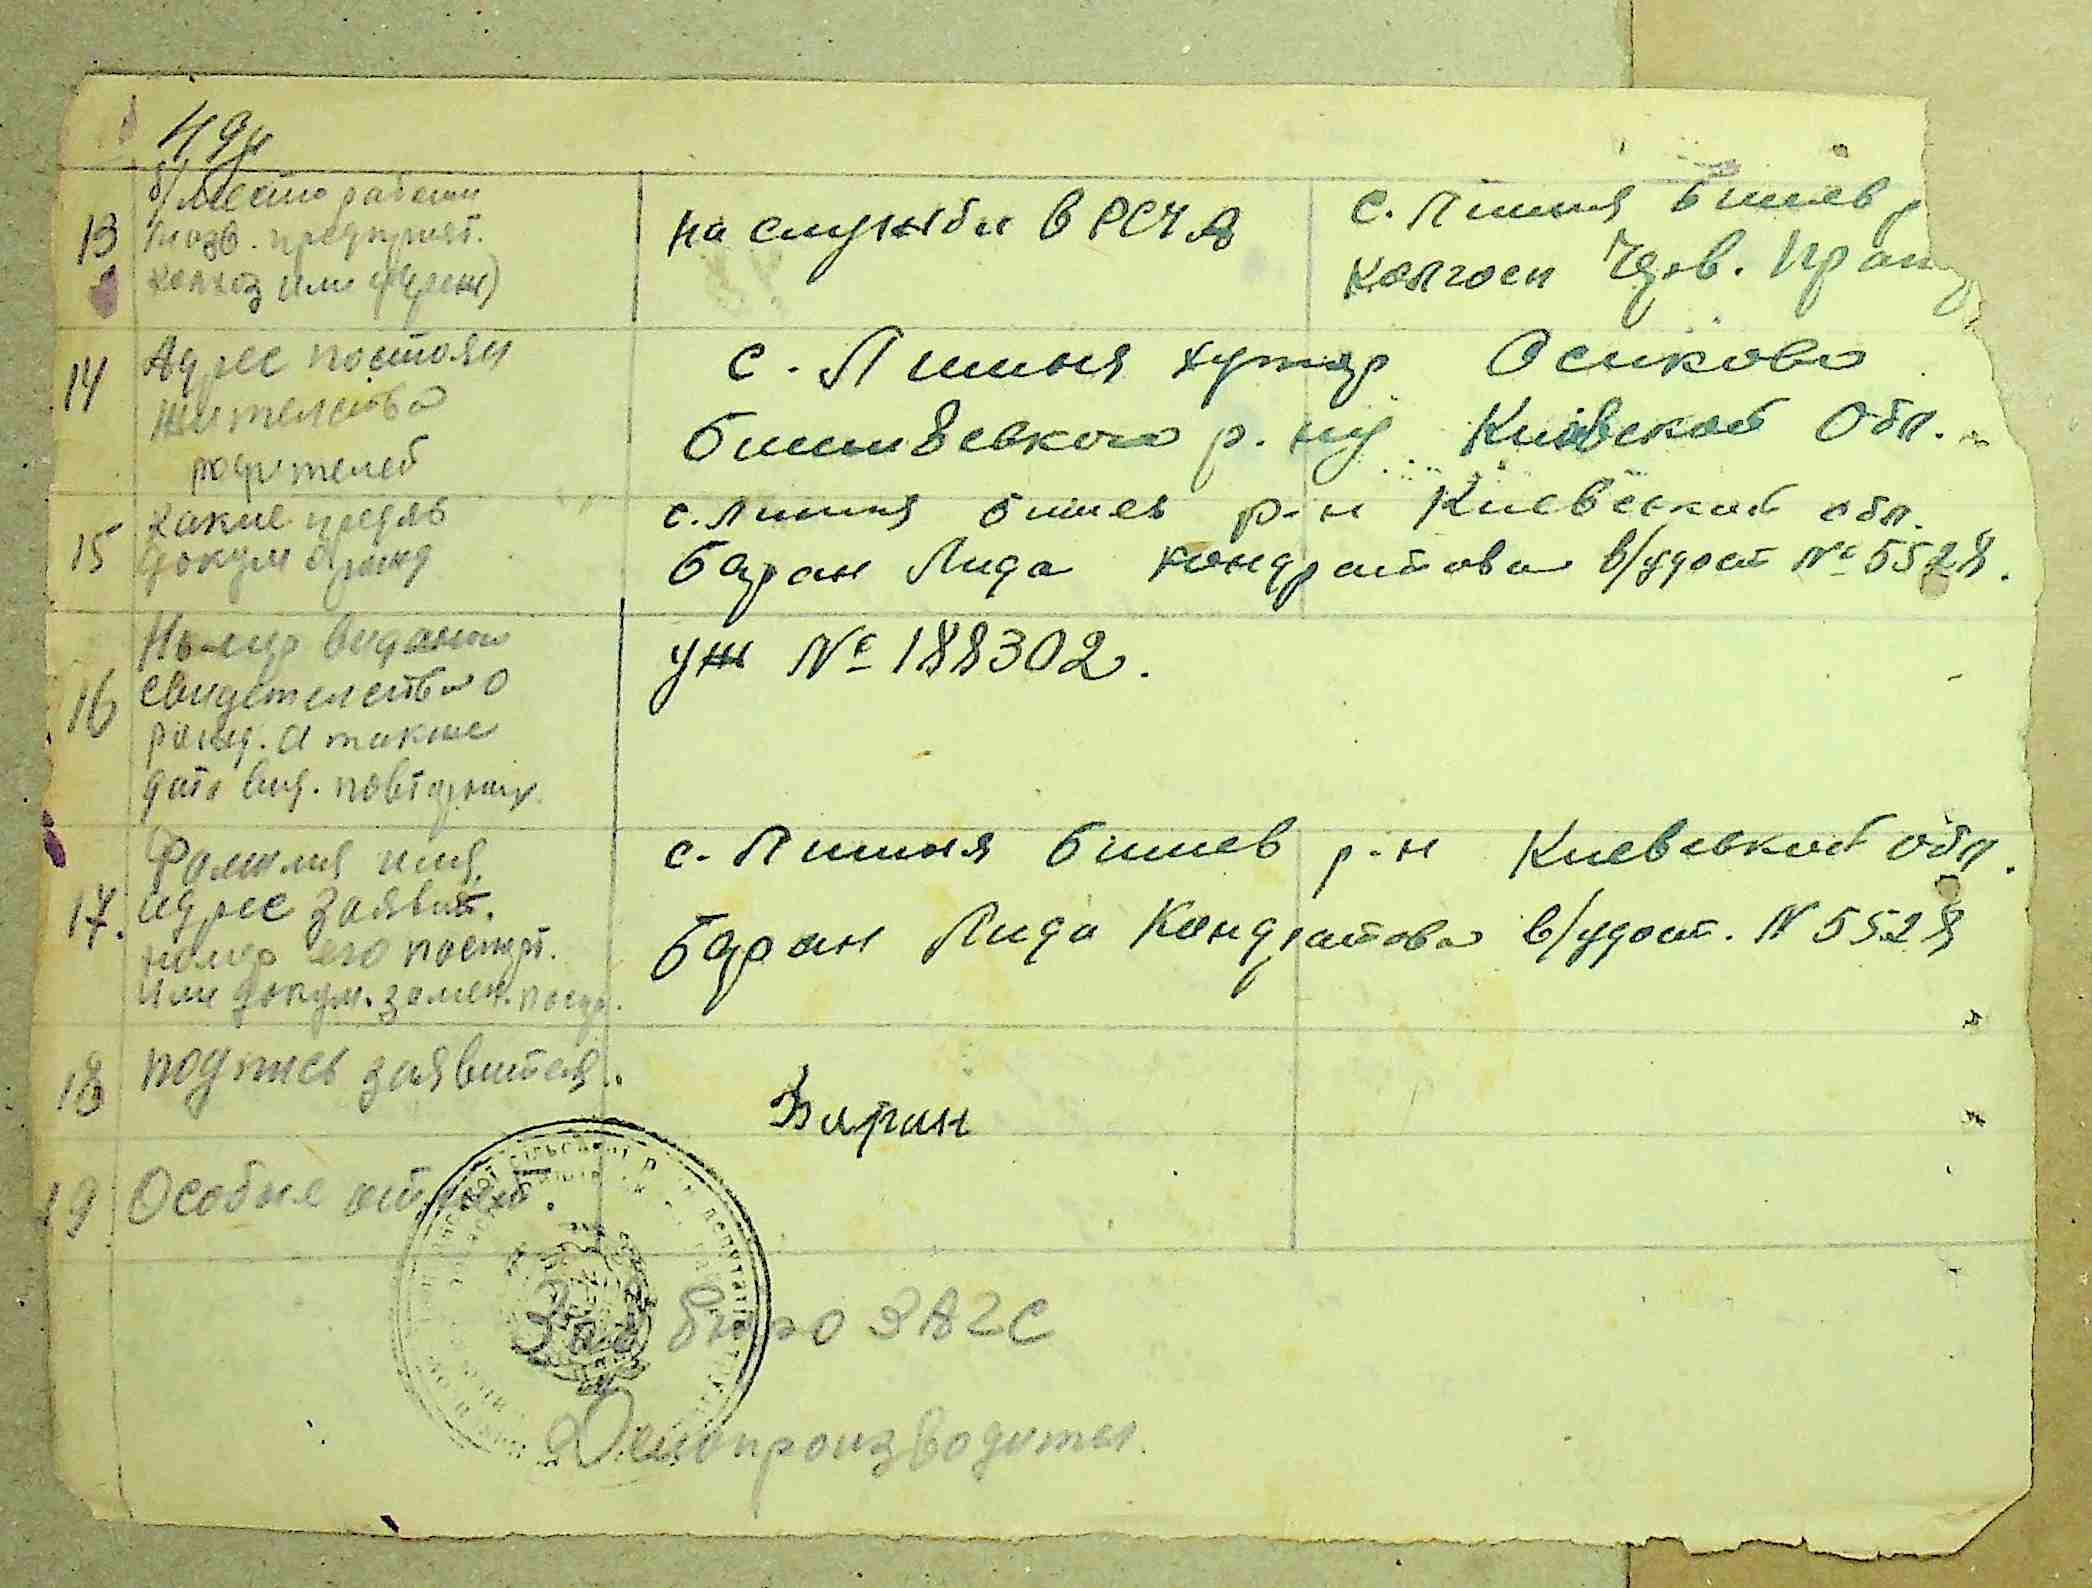 13 б/ место работы
назв. предприят.
колхоз или (учреж)
на службе в РСЧА
с. Лишня Бишев р
колгосп Черв. Прап
14 Адрес постоян
жителства
родителей
с. Лишня хутор Осиково
Бишивского р. ну Киевской Обл.
15 какие предяв
докум о рожд
с. Лишня Бишев р-н Киевской обл.
Баран Лида Кондратова в/удост № 5528.
16 Номер видано
свидетелства о
рожд. а также
дата вид. повторных
уж № 188302.
17. Фамилия имя,
адрес заявит.
номер его паспорт.
или докум. замен. паспор.
с. Лишня Бишев р-н Киевской обл.
Баран Лида Кондратова в/удост. N 5528
18 подпись заявителя.
Баран
19 Особые отмет.
Зав бюро ЗАГС
Делопроизводител